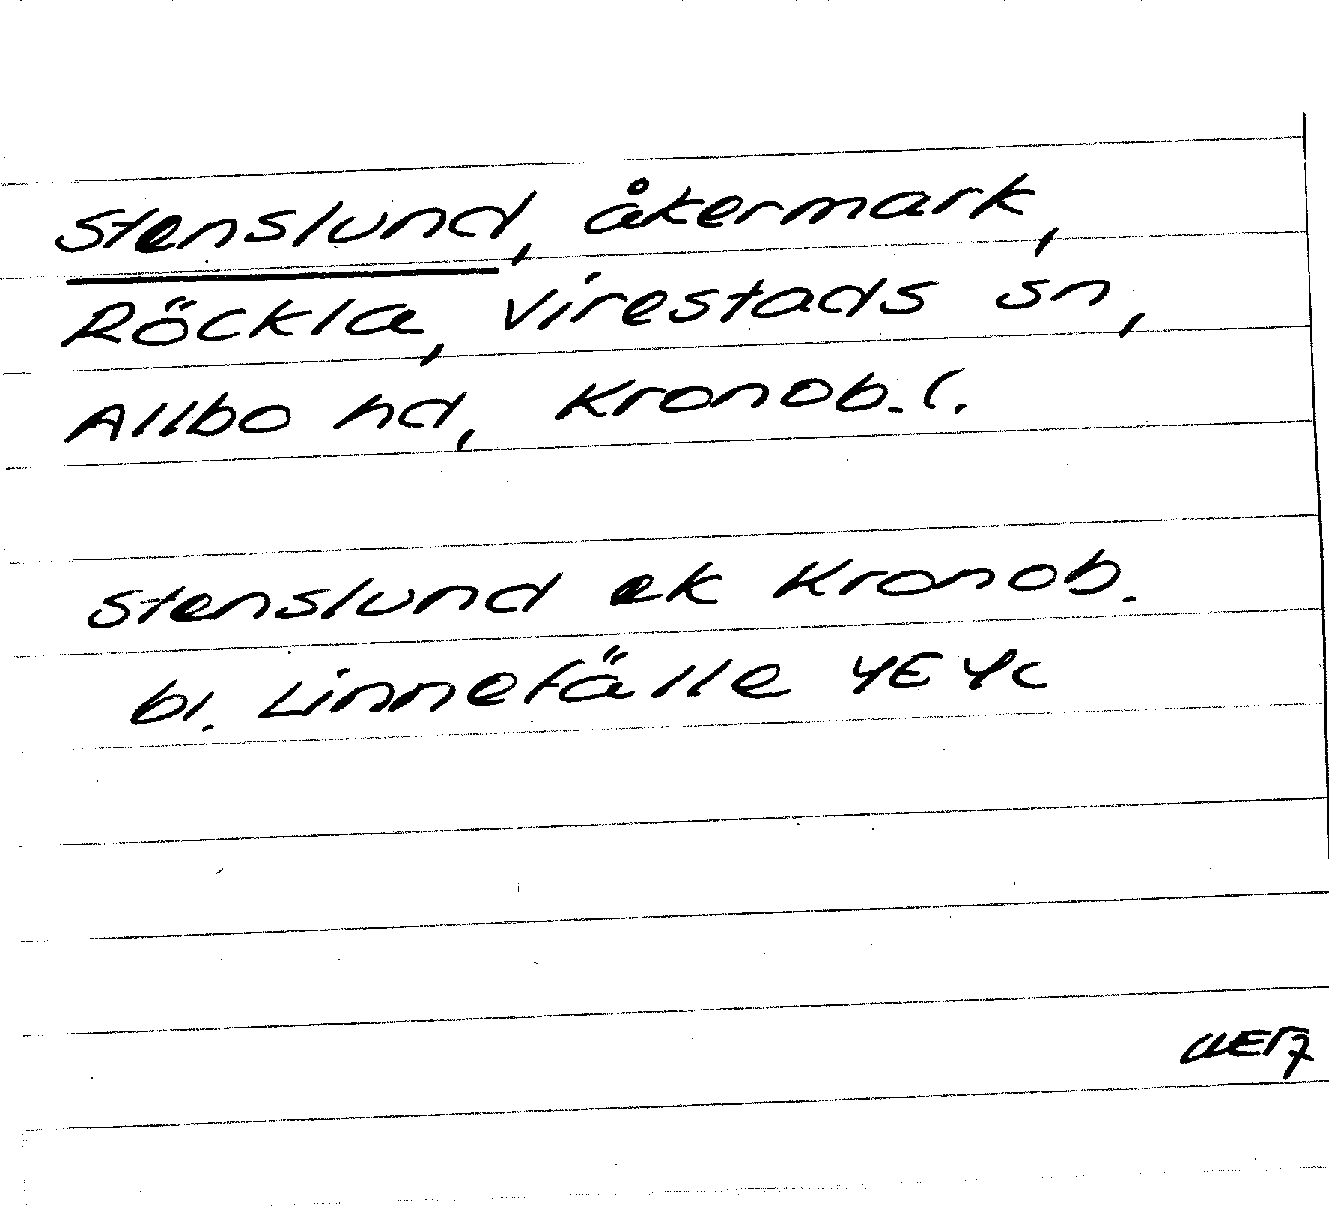 Stenslund, åkermark,
Röckla, Virestads sn,
Allbo hd, Kronob. l.
Stenslund ek Kronob.
bl. Linnefälle 4E 4c